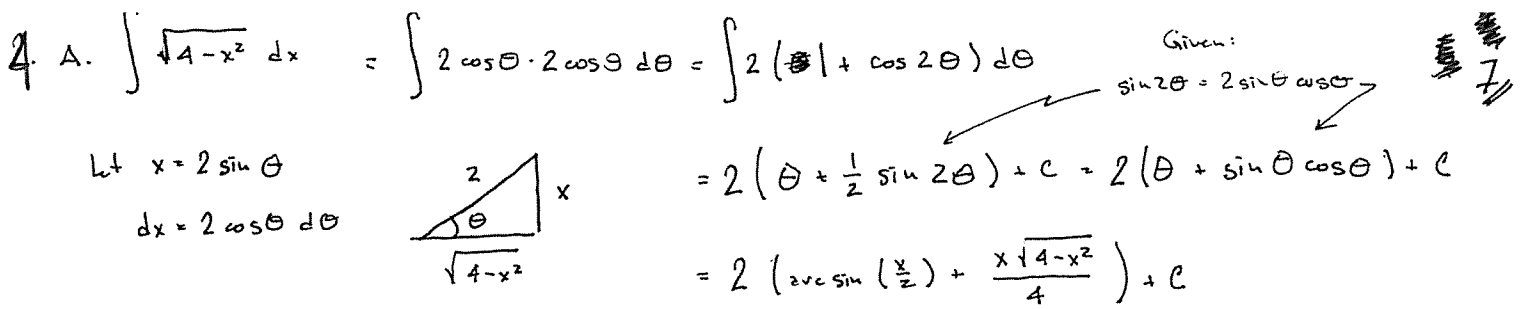 2. A. ∫ √(4-x²) dx = ∫ 2 cosθ · 2 cosθ dθ = ∫ 2 (1 + cos 2θ) dθ
Given:
sin 2θ = 2 sinθ cosθ
7
Let x = 2 sin θ
dx = 2 cosθ dθ
2
x
θ
√(4-x²)
= 2 (θ + 1/2 sin 2θ) + C = 2 (θ + sin θ cosθ) + C
= 2 (arcsin (x/2) + x√(4-x²)/4) + C